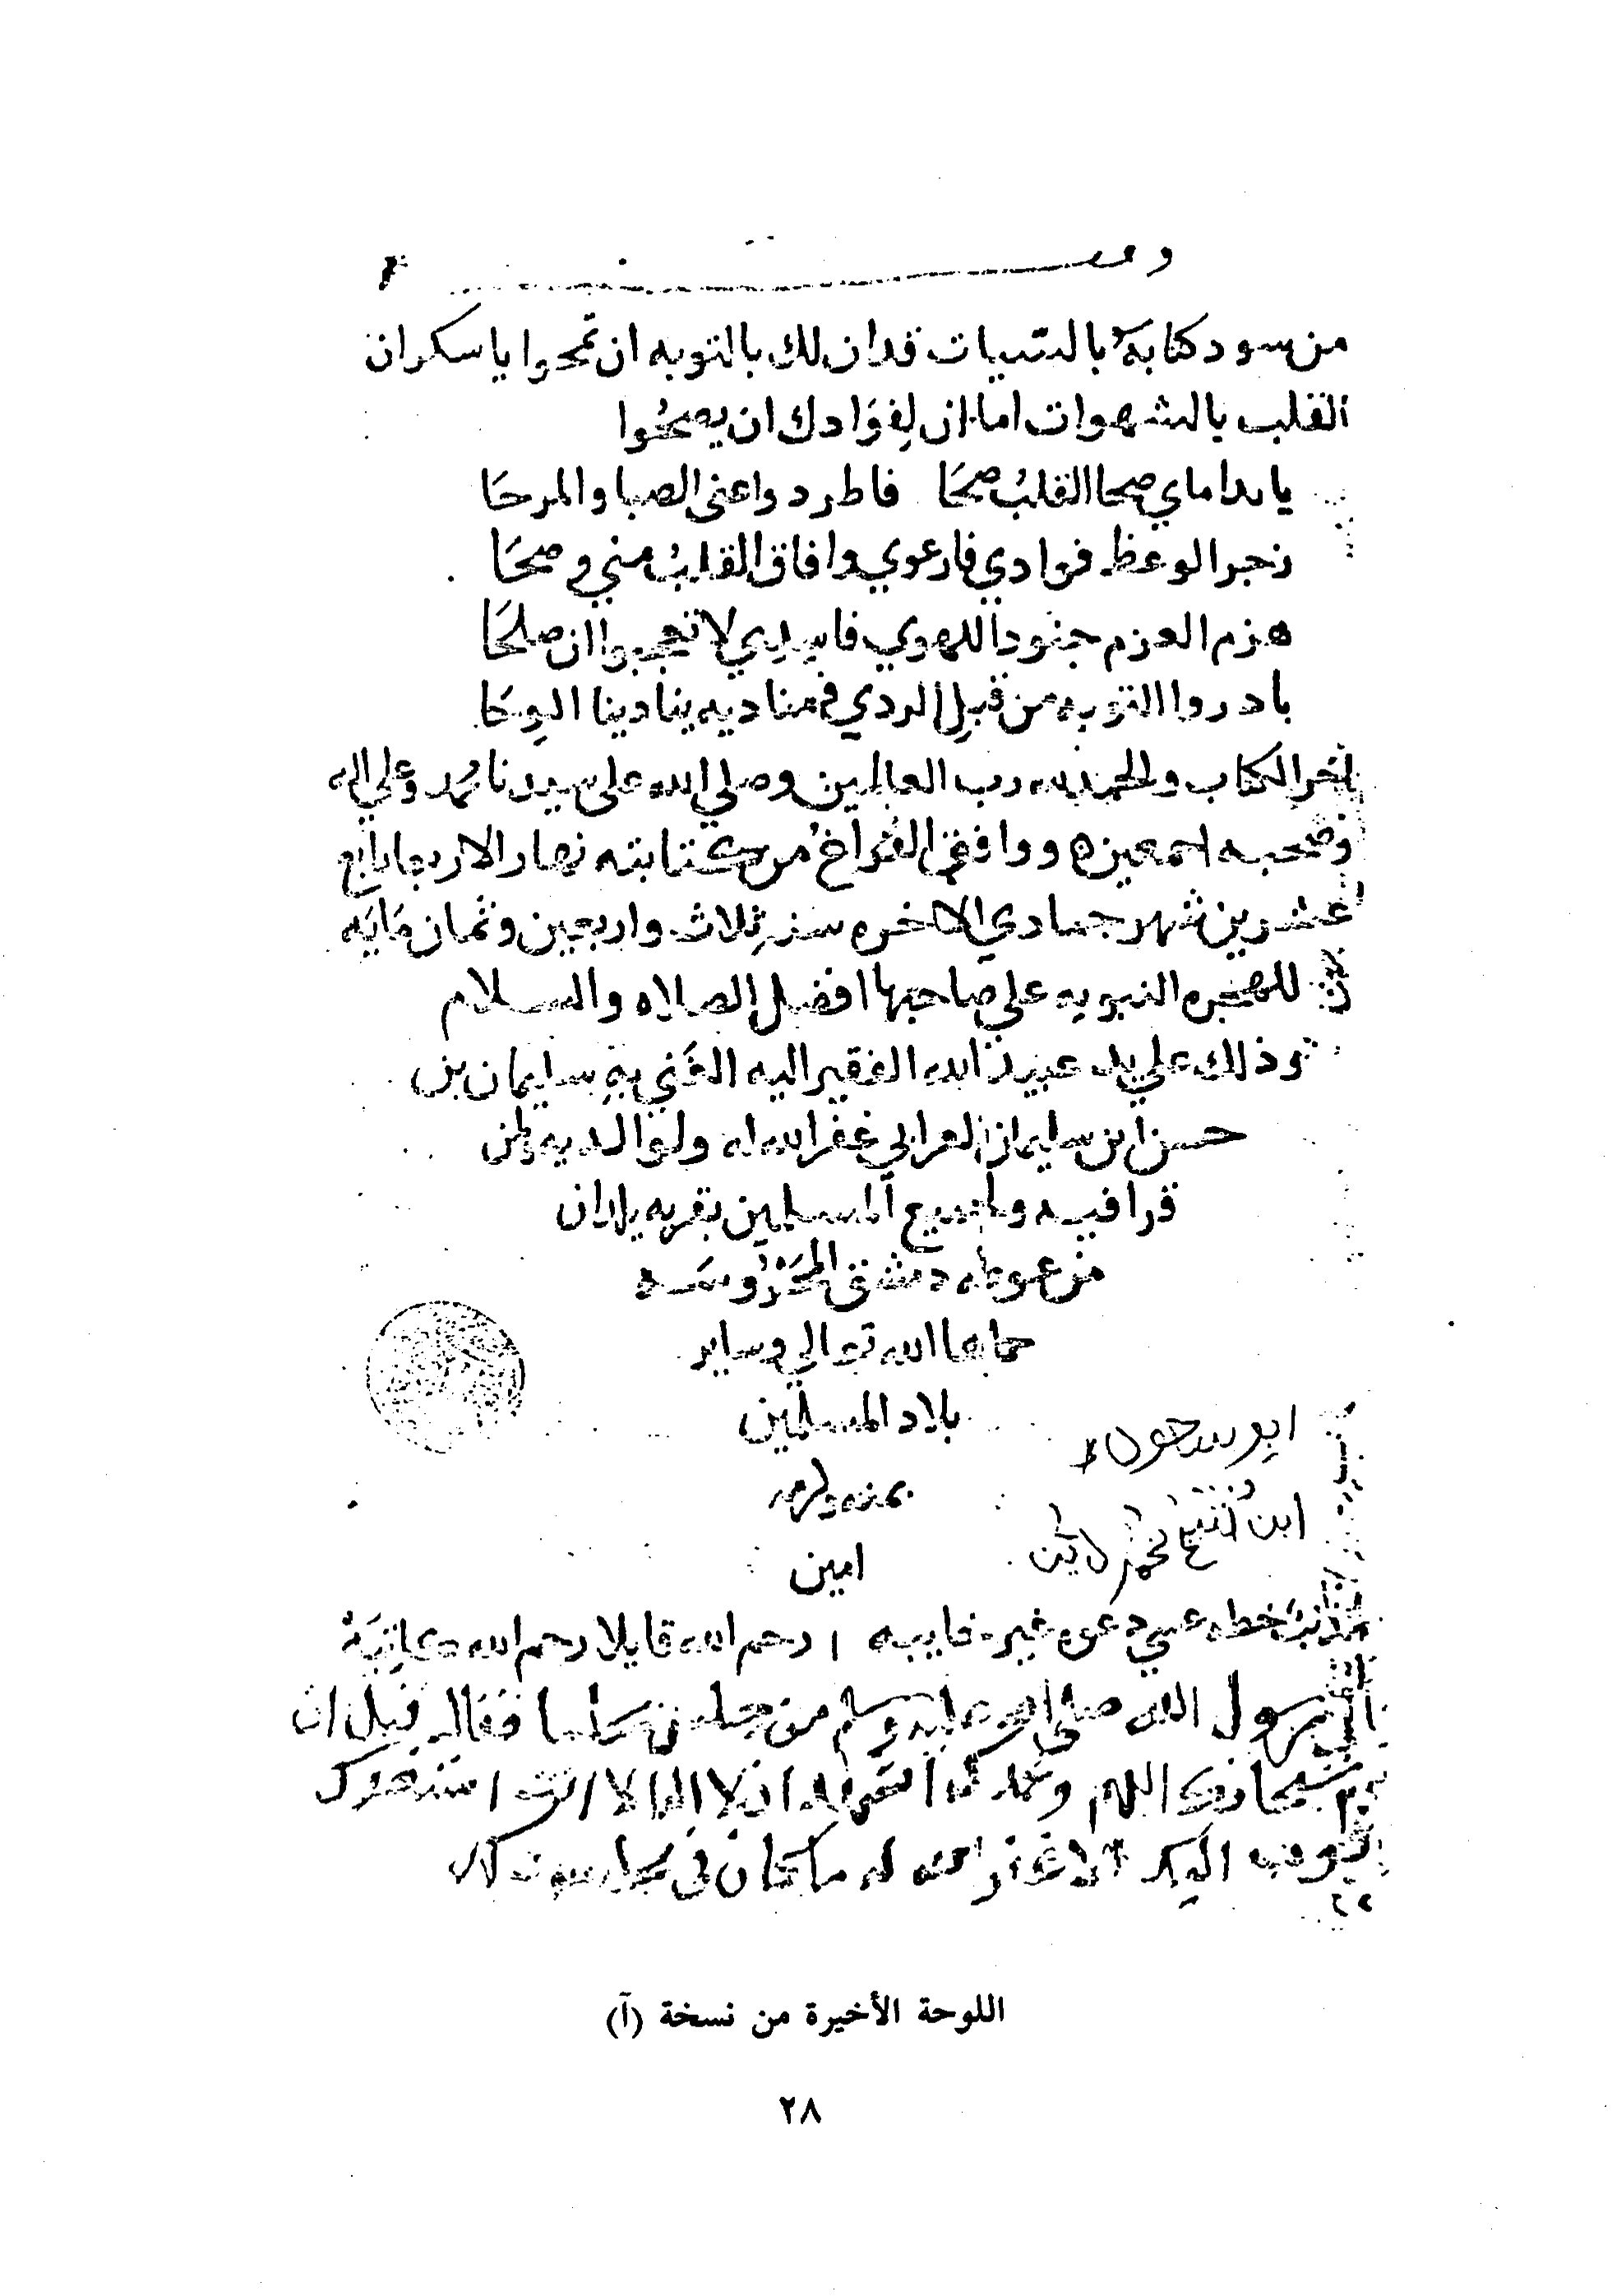 من سود كتابه بالسيات قد ان لك بالتوبه ان تمحوا يا سكران
القلب بالشهوات اما ان لفوادك ان يصحوا
يا نداماي صحا القلب صحا فاطردوا عني الصبا والمرحا
زجر الوعظ فوادي فارعوي وافاق القلب مني وصحا
هزم العزم جنودا للهوي فاسدي لا تعجبوا ان صلحا
بادروا التوبه من قبل الردي فمناديه ينادينا الوحا
اخر الكتاب والحمد لله رب العالمين وصلي الله علي سيدنا محمد وعلي اله
وصحبه اجمعين ووافق الفراغ من كتابته نهار الاربعا رابع
عشرين شهر جمادي الاخره سنه ثلاث واربعين وثمان مايه
للهجره النبويه علي صاحبها افضل الصلاه والسلام
وذلك علي يد عبيد الله الفقير اليه الغني به سليمان بن
حسن ابن سليمان العرابي غفر الله له ولوالديه ولمن
قرا فيه ولجميع المسلمين بقريه يلدان
من غوطه دمشق المحروسه
حماها الله تعالي وساير
بلاد المسلمين
بمنه وكرمه
امين
ابو
ابن
خطه عسي دعوه غير خايبه رحم الله قايلا رحم الله كاتبه
رسول الله صلى الله عليه وسلم من جلس مجلسا فقال قبل ان
سبحانك اللهم وبحمدك اشهد ان لا اله الا انت استغفرك
واتوب اليك الا غفر الله له ما كان في مجلسه ذلك
اللوحة الأخيرة من نسخة (آ)
٢٨